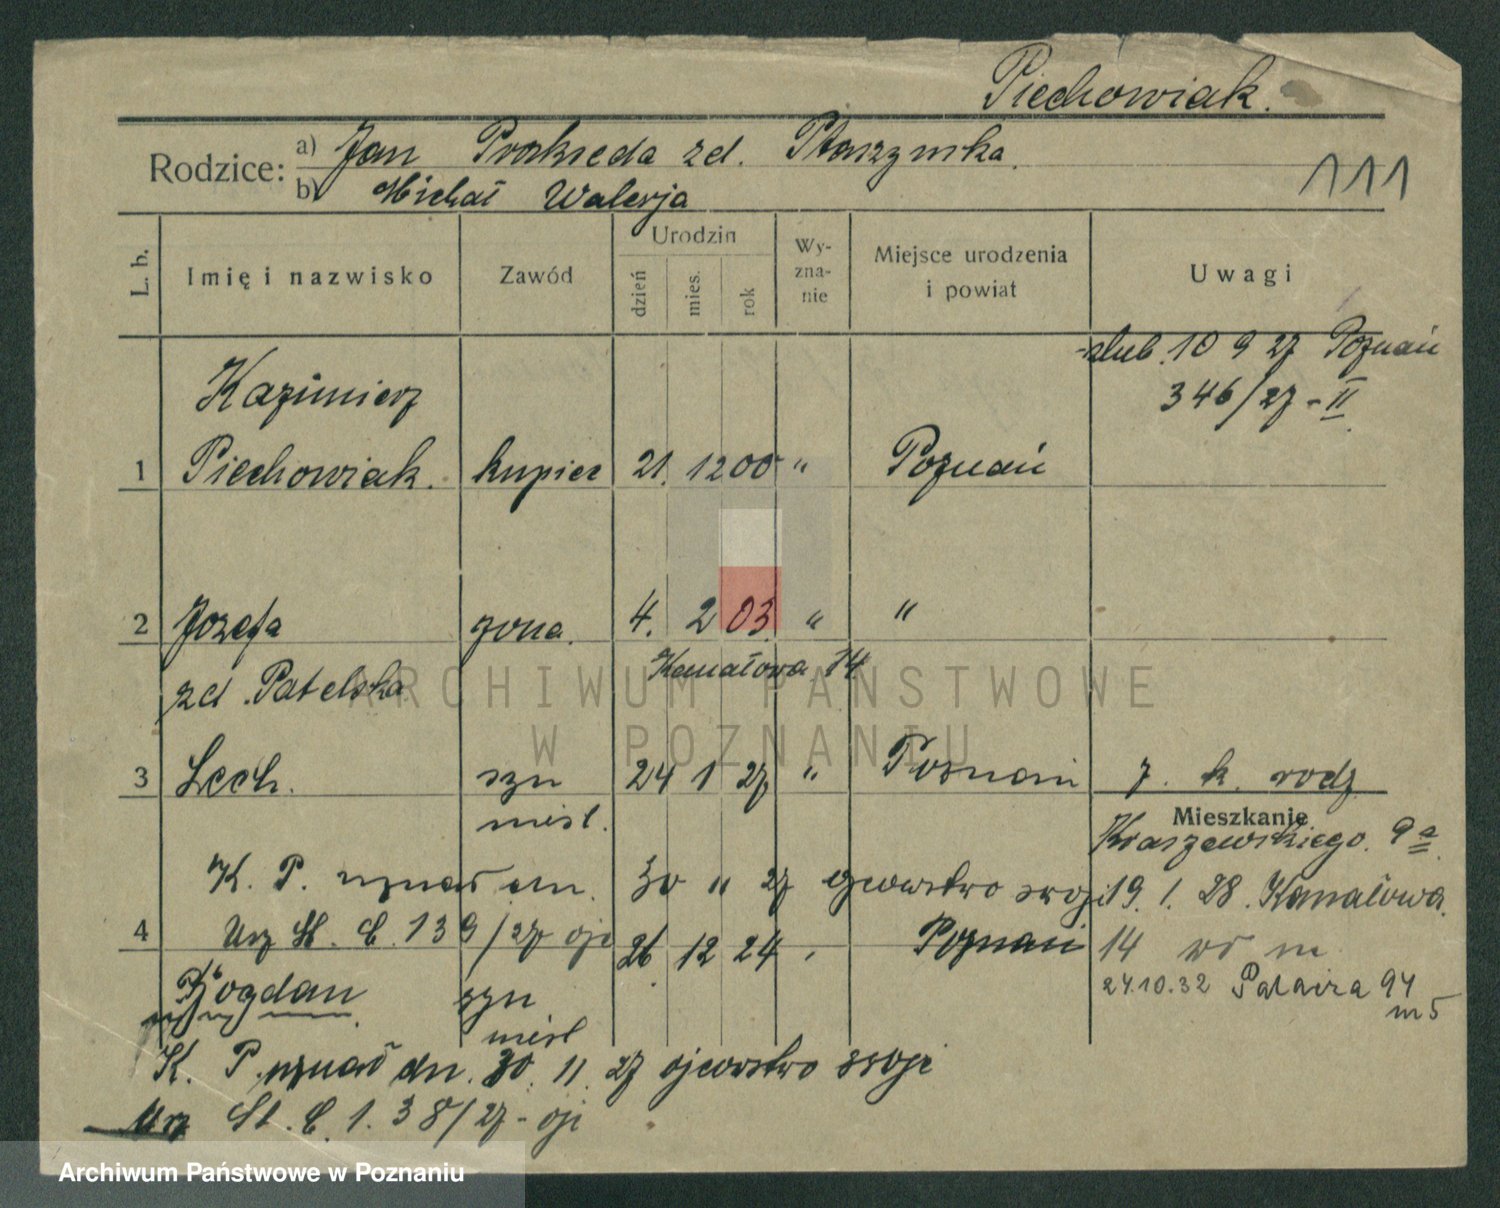 Piechowiak.
Rodzice: a) Jan Prakseda zd. Ptaszynska.
b) Michał Walerja
111
L. b.
Imię i nazwisko
Zawód
Urodzin
dzień
mies.
rok
Wy-
zna-
nie
Miejsce urodzenia
i powiat
Uwagi
ślub. 10 9 27 Poznań
346/27 - II
Kazimierz
1 Piechowiak. kupiec 21. 12 00 " Poznań
2 Jozefa zona. 4. 2 03. " "
zd. Patelska Kanałowa 14
ARCHIWUM PAŃSTWOWE
W POZNANIU
3 Lech. syn 24 1 27 " Poznań 7. k. rodz
niesl.
Mieszkanie
Kraszewskiego. 9a
K. P. uznał dn. 30 11 27 ojcowstwo swoje
19. 1. 28. Kanałowa.
4 Urz St. C. 139/27
26 12 24 Poznań
14 m
Bogdan syn
24.10.32 94
m 5
niesl
K. P. uznał dn. 30. 11 27 ojcowstwo swoje
Urz St. C. 1. 38/27 -
Archiwum Państwowe w Poznaniu